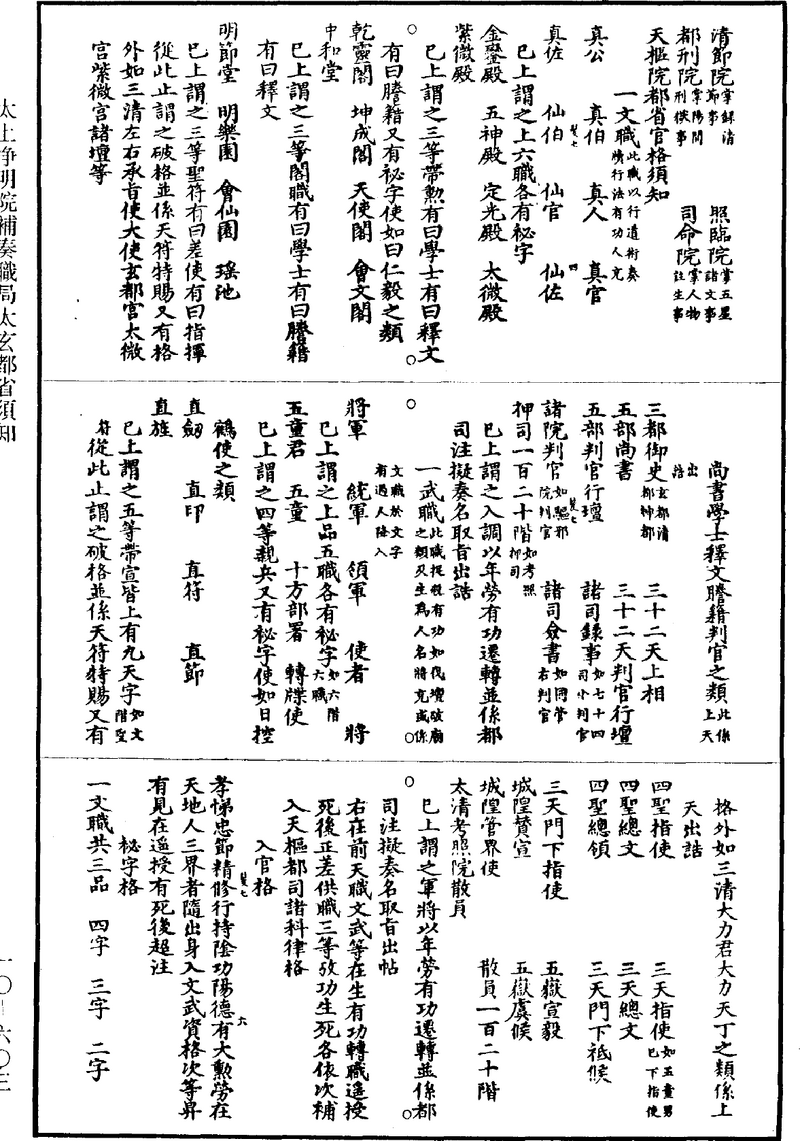 清節院掌錄清節事　照臨院掌五星諸文事
都刑院掌陽間刑獄事　司命院掌人物註生事
天樞院都省官格須知
一文職此職以行道術奏牘行法有功人充
真公　真伯　真人　真官
真佐　仙伯　仙官　仙佐
巳上謂之上六職各有祕字
金鑾殿　五神殿　定光殿　太微殿
紫微殿
巳上謂之三等帶勲有曰學士有曰釋文
有曰謄籍又有祕字使如曰仁毅之類
乾靈閣　坤成閣　天使閣　會文閣
中和堂
巳上謂之三等閣職有曰學士有曰謄籍
有曰釋文
明節堂　明樂園　會仙園　瑤池
巳上謂之三等聖符有曰差使有曰指揮
從此止謂之破格並係天符特賜又有格
外如三清左右承旨使大使玄都宮太微
宮紫微宮諸壇等
尚書學士釋文謄籍判官之類此係上天
出誥
三都御史玄都清都神都　三十二天上相
五部尚書　三十二天判官行壇
五部判官行壇　諸司錄事如七十四司小判官
諸院判官如驅邪院判官　諸司僉書如同管右判官
押司一百二十階如考照押司
巳上謂之入調以年勞有功遷轉並係都
司注擬奏名取旨出誥
一武職此職捉祟有功如伐壇破廟之類及生為人名將充或係
文職於文字有過人降入
將軍　統軍　領軍　使者　將
巳上謂之上品五職各有祕字如六階六職
五童君　五童　十方部署　轉牒使
巳上謂之四等親兵又有祕字使如日控
鶴使之類
直劒　直印　直符　直節
直旌
巳上謂之五等帶宣皆上有九天字如文階聖
符從此止謂之破格並係天符特賜又有
格外如三清大力君大力天丁之類係上
天出誥
四聖指使　三天指使如五童男巳下指使
四聖總文　三天總文
四聖總領　三天門下祗候
三天門下指使　五嶽宣毅
城隍贊宣　五嶽虞候
城隍管界使　散員一百二十階
太清考照院散員
巳上謂之軍將以年勞有功遷轉並係都
司注擬奏名取旨出帖
右在前天職文武等在生有功轉職遥授
死後正差供職三等攷功生死各依次補
入天樞都司諸科律格
入官格
孝悌忠節精修行持陰功陽德有大勲勞在
天地人三界者隨出身入文武資格次等昇
有見在遥授有死後超注
祕字格
一文職共三品　四字　三字　二字
太上淨明院補奏職局太玄都省須知
一〇—六〇三